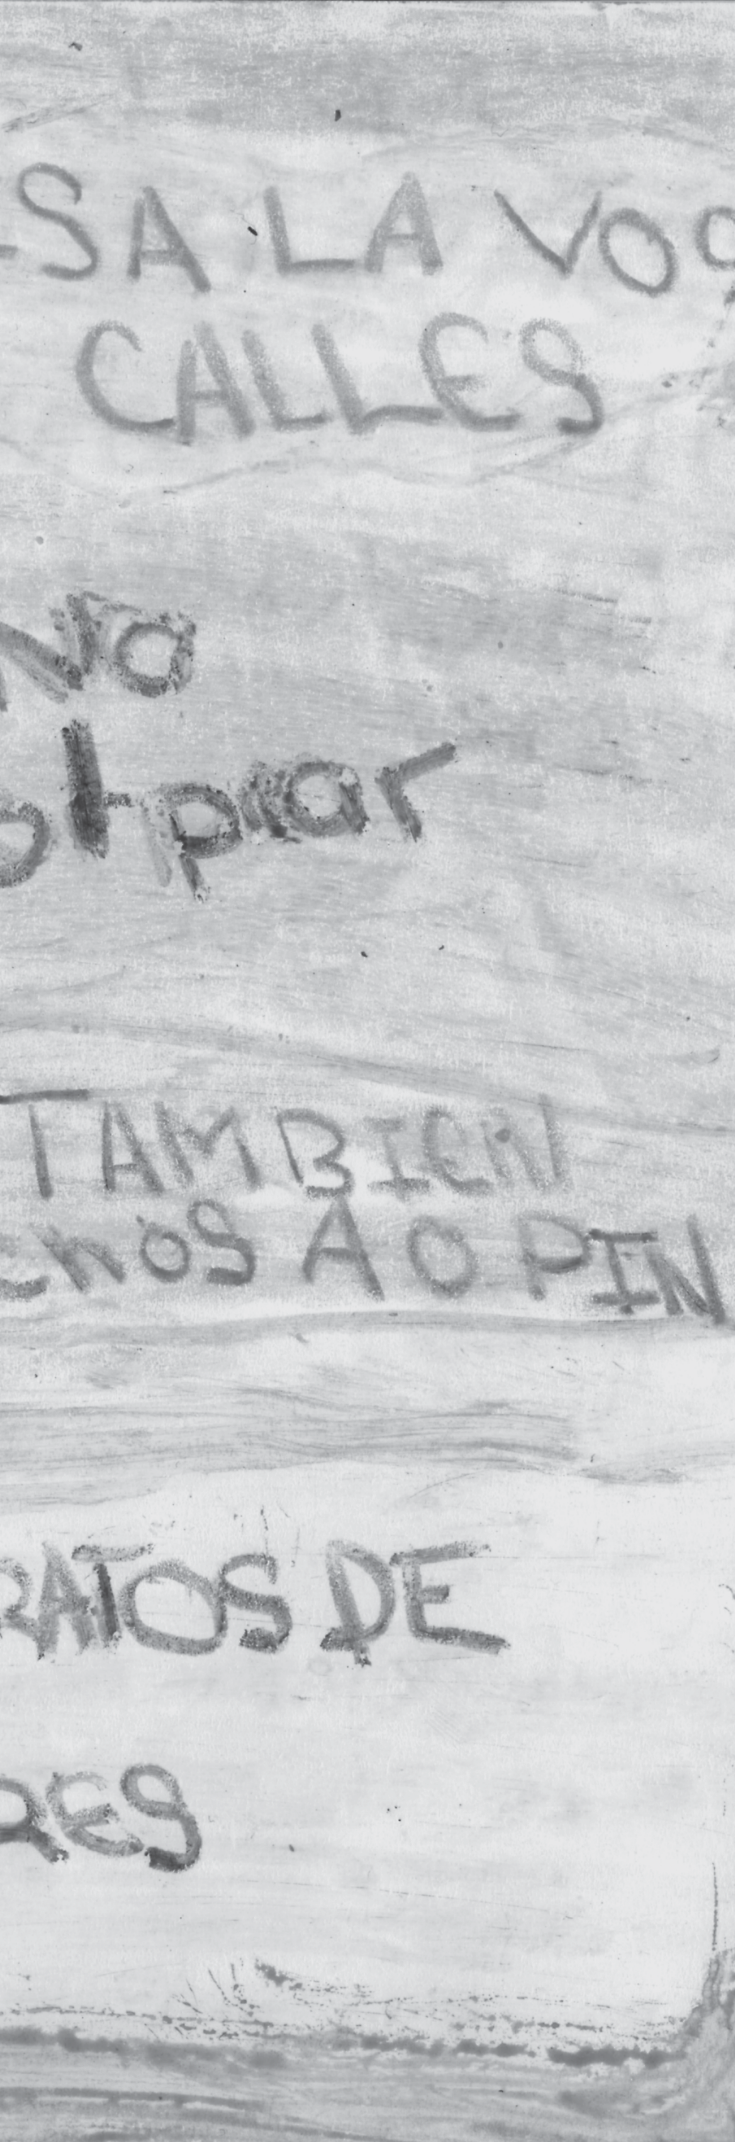 SA LA VO
CALLES
No
TAMBIEN
chos A OPIN
RATOS DE
RES